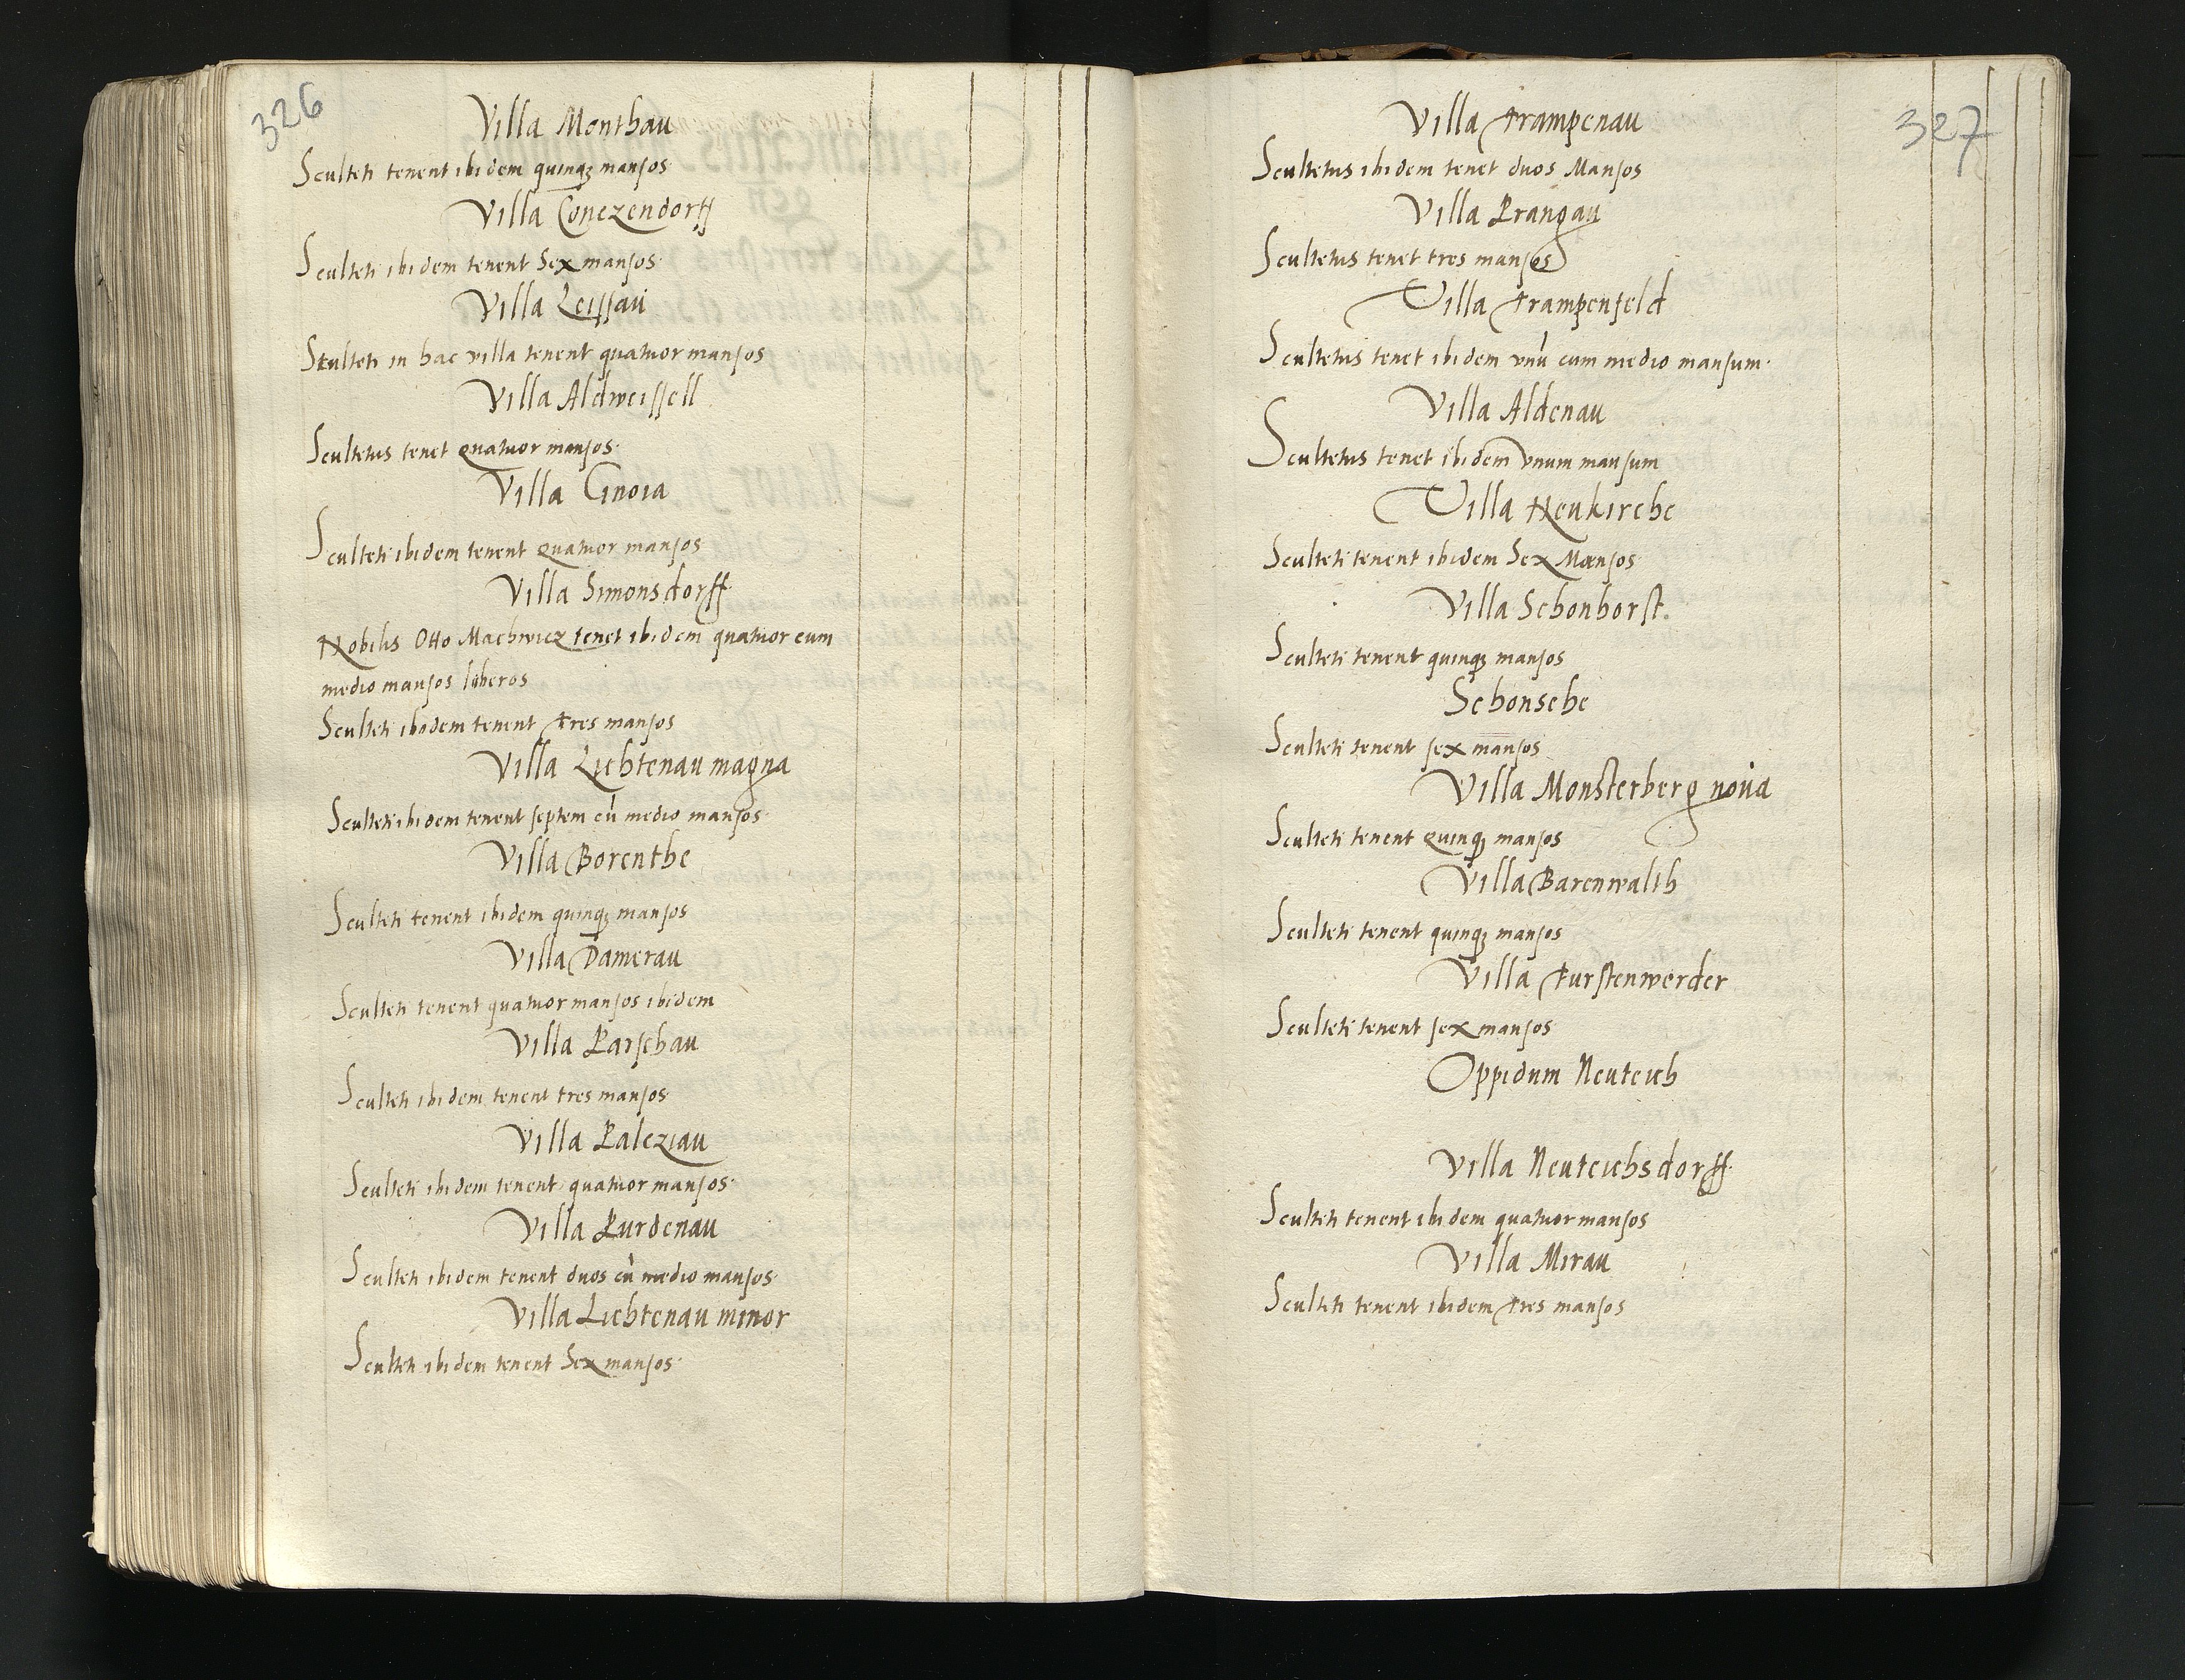 326
Villa Monthau
Sculteti tenent ibidem quinqꝫ mansos
Villa Conezendorff
Sculteti ibidem tenent Sex mansos
Villa Leissau
Sculteti in hac villa tenent quatuor mansos
Villa Aldweissell
Scultetus tenet quatuor mansos
Villa Cinoia
Sculteti ibidem tenent quatuor mansos
Villa Simonsdorff
Nobilis Otto Machwicz tenet ibidem quatuor cum
medio mansos liberos
Sculteti ibidem tenent tres mansos
Villa Lichtenau magna
Sculteti ibidem tenent septem cū medio mansos
Villa Borenthe
Sculteti tenent ibidem quinqꝫ mansos
Villa Damerau
Sculteti tenent quatuor mansos ibidem
Villa Parschau
Sculteti ibidem tenent tres mansos
Villa Palcziau
Sculteti ibidem tenent quatuor mansos
Villa Purdenau
Sculteti ibidem tenent duos cū medio mansos
Villa Lichtenau minor
Sculteti ibidem tenent Sex mansos
327
Villa Trampenau
Scultetus ibidem tenet duos Mansos
Villa Prangau
Scultetus tenet tres mansos
Villa Trampenfeld
Scultetus tenet ibidem vnū cum medio mansum
Villa Aldenau
Scultetus tenet ibidem vnum mansum
Villa Neukirche
Sculteti tenent ibidem Sex Mansos
Villa Schonhorst.
Sculteti tenent quinqꝫ mansos
Schonsehe
Sculteti tenent sex mansos
Villa Monsterberg noua
Sculteti tenent quinqꝫ mansos
Villa Barenwalth
Sculteti tenent quinqꝫ mansos
Villa Furstenwerder
Sculteti tenent sex mansos
Oppidum Neuteich
Villa Neuteichsdorff
Sculteti tenent ibidem quatuor mansos
Villa Mirau
Sculteti tenent ibidem tres mansos